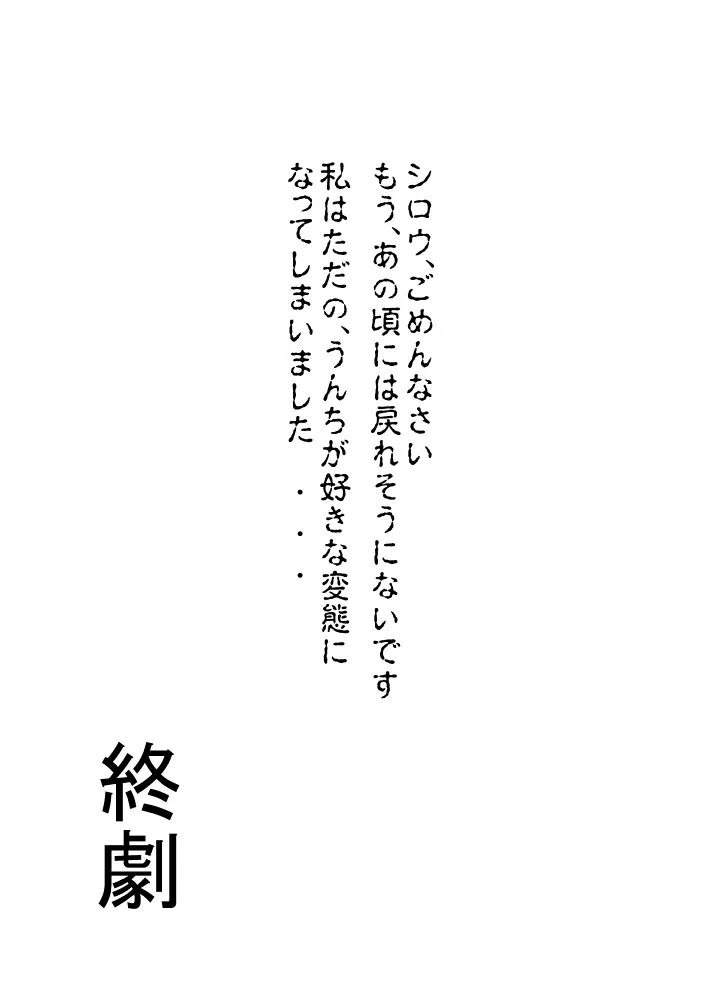 シロウ、ごめんなさい
もう、あの頃には戻れそうにないです
私はただの、うんちが好きな変態に
なってしまいました・・・
終劇